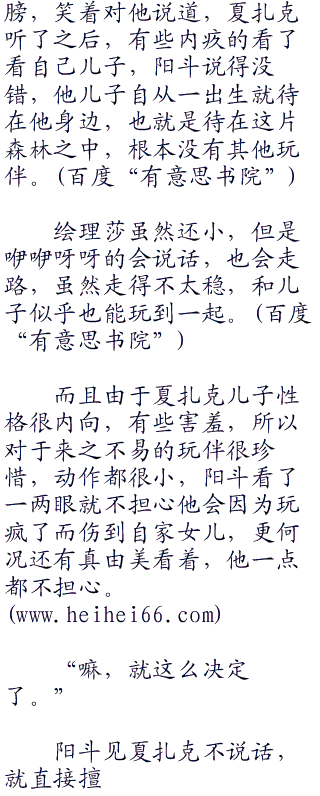 膀，笑着对他说道，夏扎克
听了之后，有些内疚的看了
看自己儿子，阳斗说得没
错，他儿子自从一出生就待
在他身边，也就是待在这片
森林之中，根本没有其他玩
伴。(百度“有意思书院”)
绘理莎虽然还小，但是
咿咿呀呀的会说话，也会走
路，虽然走得不太稳，和儿
子似乎也能玩到一起。(百度
“有意思书院”)
而且由于夏扎克儿子性
格很内向，有些害羞，所以
对于来之不易的玩伴很珍
惜，动作都很小，阳斗看了
一两眼就不担心他会因为玩
疯了而伤到自家女儿，更何
况还有真由美看着，他一点
都不担心。
(www.heihei66.com)
“嘛，就这么决定
了。”
阳斗见夏扎克不说话，
就直接擅